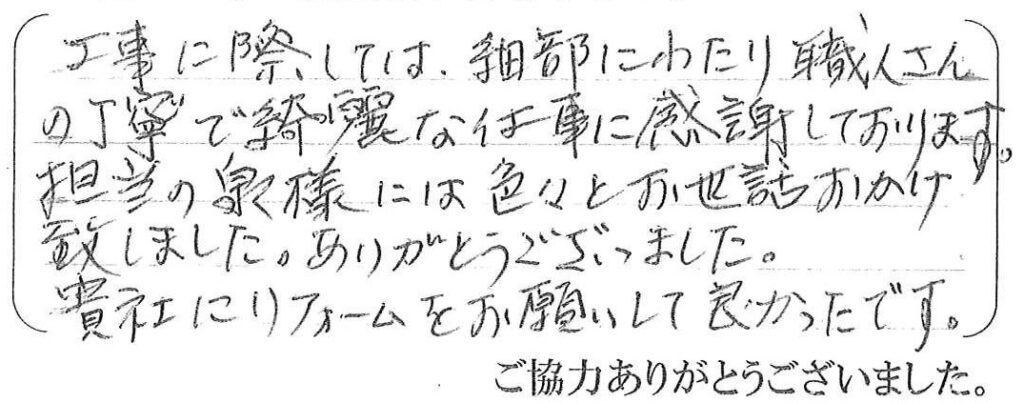 工事に際しては、細部にわたり職人さん
の丁寧で綺麗な仕事に感謝しております。
担当の泉様には色々とお世話おかけ
致しました。ありがとうございました。
貴社にリフォームをお願いして良かったです。
ご協力ありがとうございました。